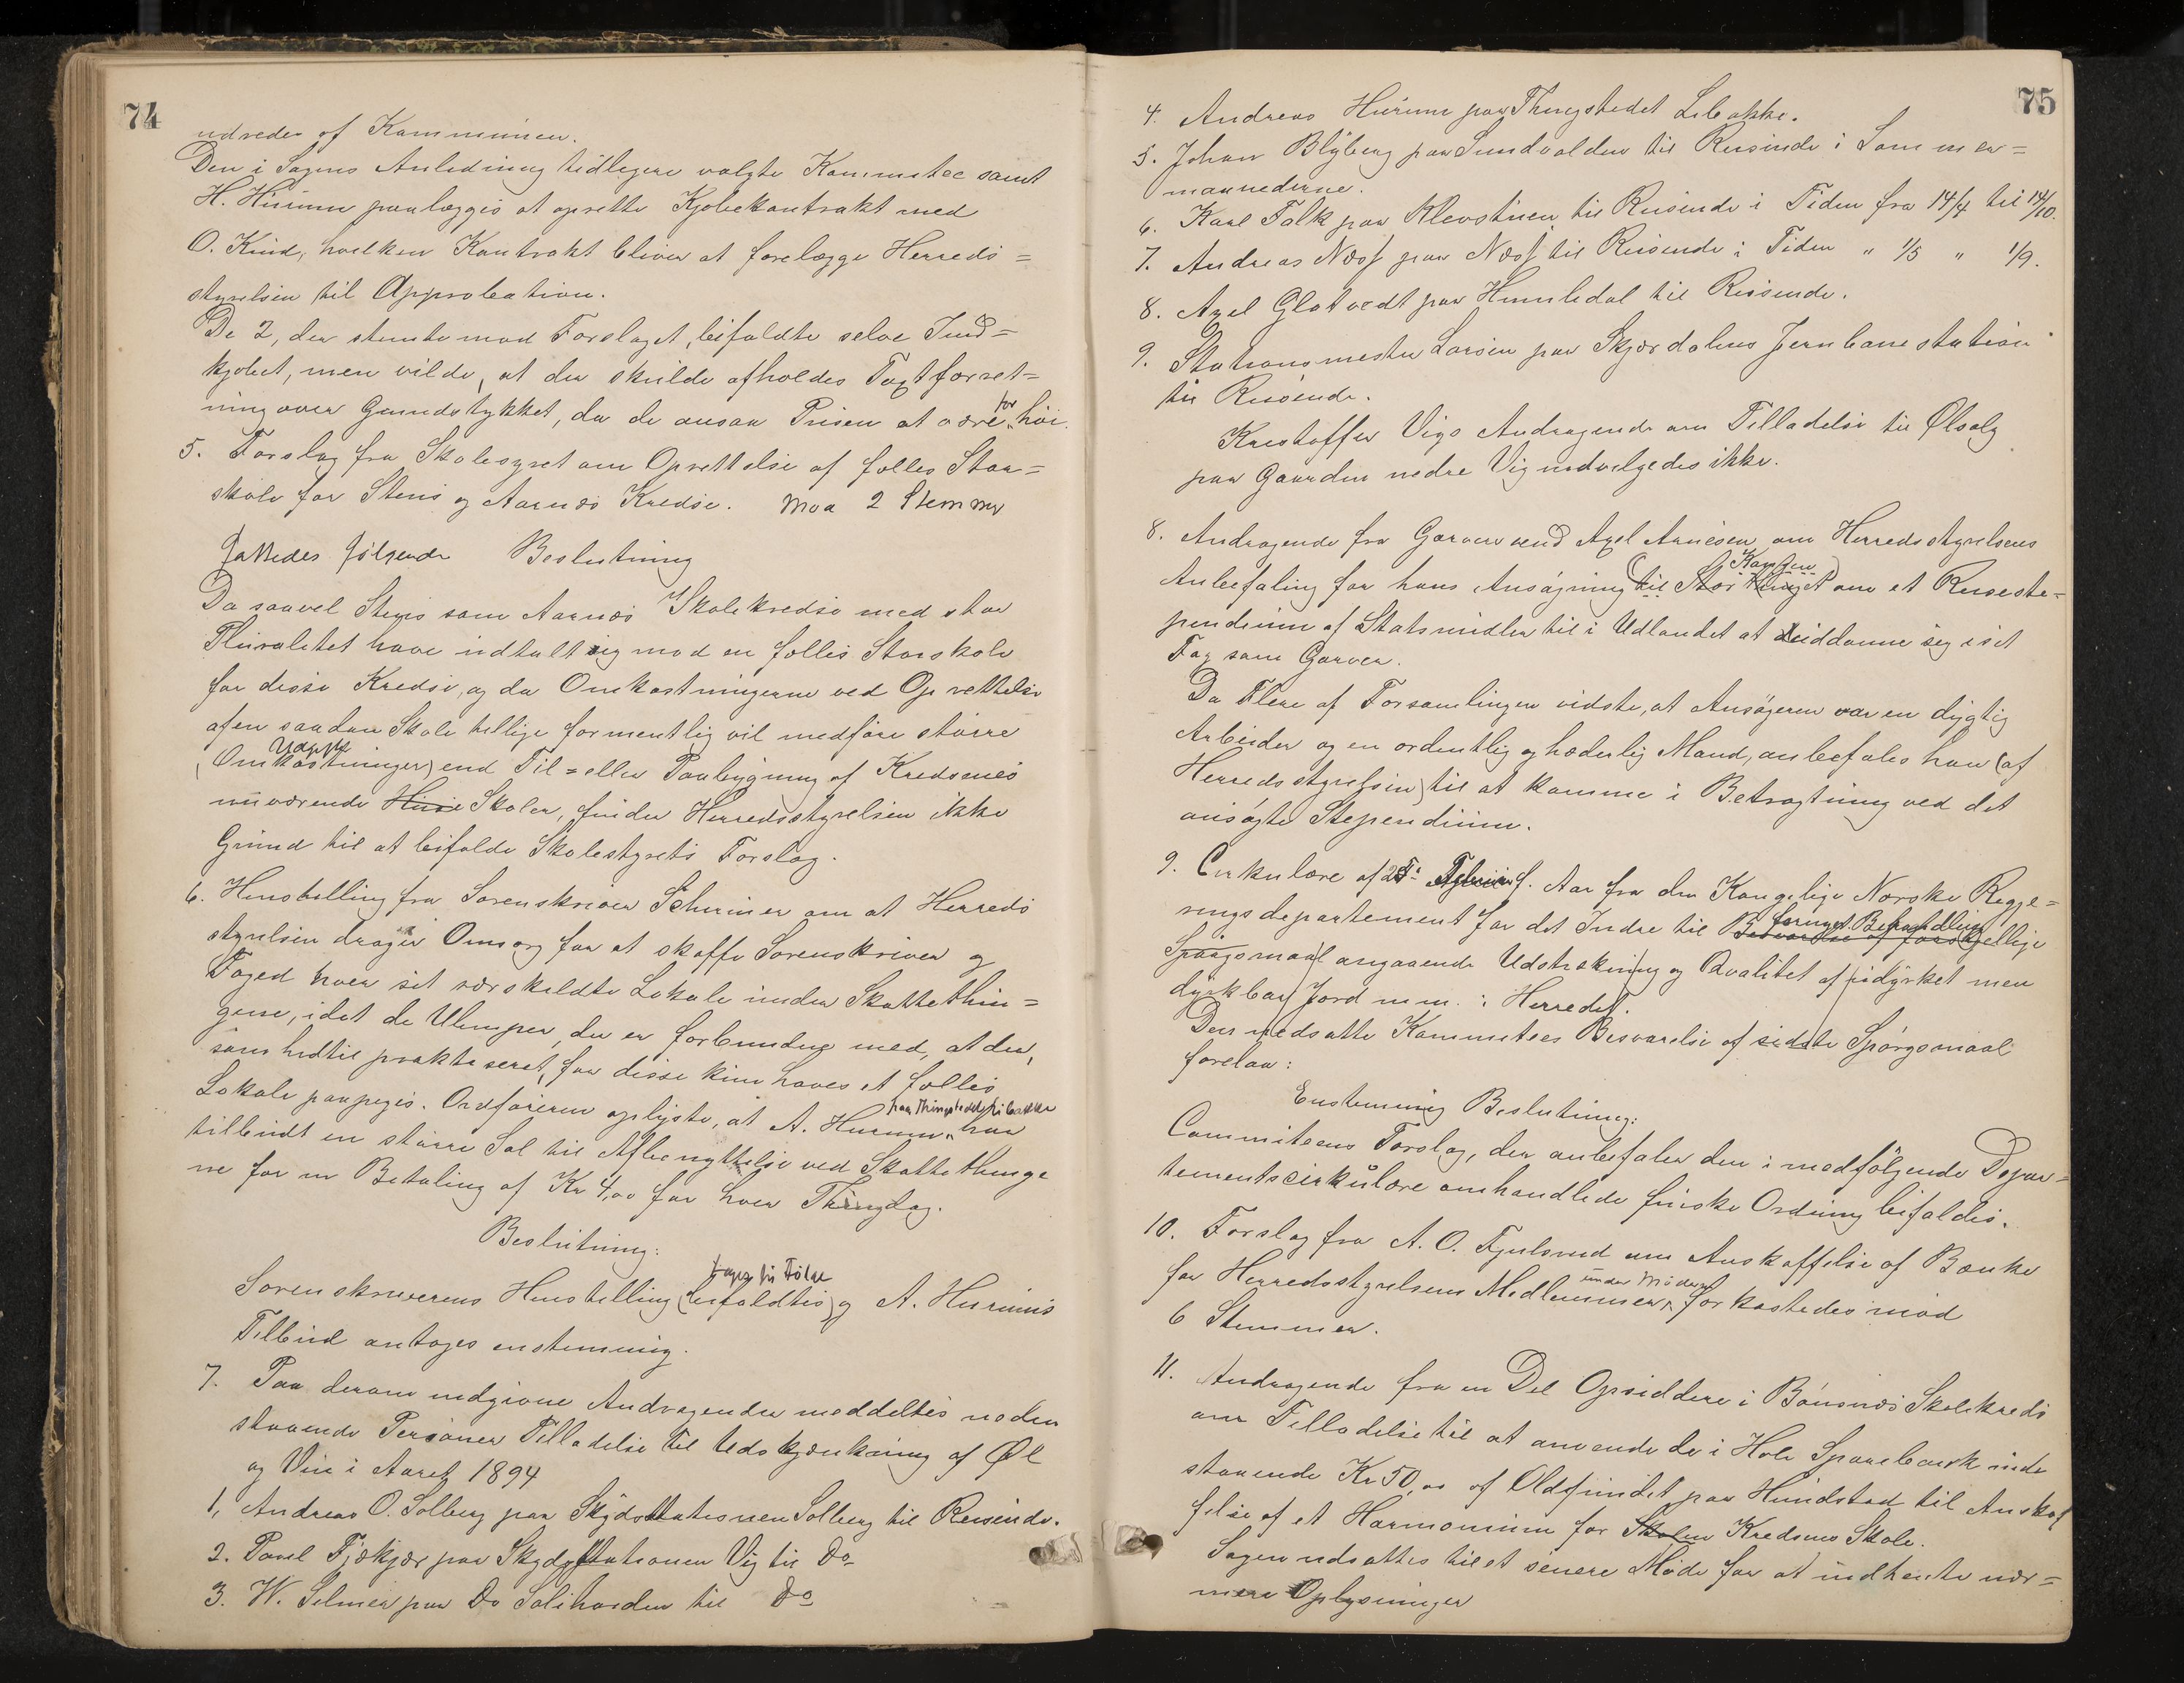 74
udredes af Kommunen.
Den i Sagens Anledning tidligere valgte Kommitee samt
H. Hurum paalægges at oprette Kjøbekontrakt med
O. Kind, hvilken Kontrakt bliver at forelægge Herreds=
styrelsen til Approbation.
De 2, der stemte mod Forslaget, bifaldte selve Ind=
kjøbet, men vilde, at der skulde afholdes Taxtforret=
ning over Grundstykket, da de ansaa Prisen at være for høi.
5. Forslag fra Skolestyret om Oprettelse af fælles Stor=
skole for Stens og Aarnæs Kredse. Mod 2 Stemmer
fattedes følgende Beslutning
Da saavel Stens som Aarnæs Skolekredse med stor
Pluralitet have udtalt sig mod en fælles Storskole
for disse Kredse, og da Omkostningerne ved Oprettelse
af en saadan Skole tillige formentlig vil medføre større
Udgifter
(Omkostninger) end Til= eller Paabygning af Kredsenes
nuværende Huse Skoler, finder Herredsstyrelsen ikke
Grund til at bifalde Skolestyrets Forslag.
6. Henstilling fra Sorenskriver Schrøiner om at Herreds
styrelsen drager Omsorg for at skaffe Sorenskriver og
Foged hver sit særskildte Lokale under Skattethin=
gene, idet de Ulemper, der er forbundne med, at der,
som hidtil praktiseret, for disse kun haves et fælles
Lokale paapeges. Ordføreren oplyste, at A. Hurum paa Thingstedet Libakke har
tilbudt en større Sal til Afbenyttelse ved Skattethinge
ne for en Betaling af Kr 4,00 for hver Thingdag.
Beslutning:
tages til Følge
Sorenskriverens Henstilling (bifaldtes) og A. Hurums
Tilbud antoges enstemmig.
7. Paa derom indgivne Andragender meddeltes neden
staaende Personer Tilladelse til Udskjænkning af Øl
og Vin i Aaret 1894
1, Andreas O. Solberg paa Skydsstationen Solberg til Reisende.
2. Povel Fjækjær paa Skydsstationen Vig til Do
3. W. Selmer paa Do Solihaugen til Do
75
4. Andreas Hurum paa Thingstedet Libakke.
5. Johan Blyberg paa Sundvolden til Reisende i Sommer=
maanederne.
6. Karl Falk paa Klevstuen til Reisende i Tiden fra 14/4 til 14/10.
7. Andreas Næss paa Næss til Reisende i Tiden " 1/5 " 1/9.
8. Axel Glatvedt paa Humledal til Reisende.
9. Stationsmester Larsen paa Skjærdalens Jernbanestation
til Reisende.
Kristoffer Vigs Andragende om Tilladelse til Ølsalg
paa Gaarden nedre Vig indvilgedes ikke.
8. Andragende fra Garversvend Axel Arnesen om Herredsstyrelsens
Kongen
Anbefaling for hans Ansøgning (til Storthinget) om et Reisesti=
pendium af Statsmidler til i Udlandet at uddanne sig i sit
Fag som Garver.
Da Flere af Forsamlingen vidste, at Ansøgeren var en dygtig
Arbeider og en ordentlig og hæderlig Mand, anbefales han (af
Herredsstyrelsen) til at komme i Betragtning ved det
ansøgte Stependium.
9. Cirkulære af 28 f. Aar fra den Kongelige Norske Regje=
fornyet Behandling
ringsdepartement for det Indre til Besvarelse af forskjellige
Spørgsmaal angaaende Udstrækning og Qvalitet af udyrket men
dyrkbar Jord m.m. i Herredet.
Den nedsatte Kommitees Besvarelse af sidste Spørgsmaal
forelaa:
Enstemmig Beslutning:
Commiteens Forslag, der anbefaler den i medfølgende Depar=
tementscirkulære omhandlede finske Ordning bifaldes.
10. Forslag fra A. O. Fjulsrud om Anskaffelse af Bænke
for Herredsstyrelsens Medlemmer under Møderne forkastedes mod
6 Stemmer.
11. Andragende fra en Del Opsiddere i Bønsnæs Skolekreds
om Tilladelse til at anvende de i Hole Sparebank inde
staaende Kr 50,00 af Oldfundet paa Hundstad til Anskaf
felse af et Harmonium for Skolen Kredsens Skole.
Sagen udsattes til et senere Møde for at indhente nær=
mere Oplysninger